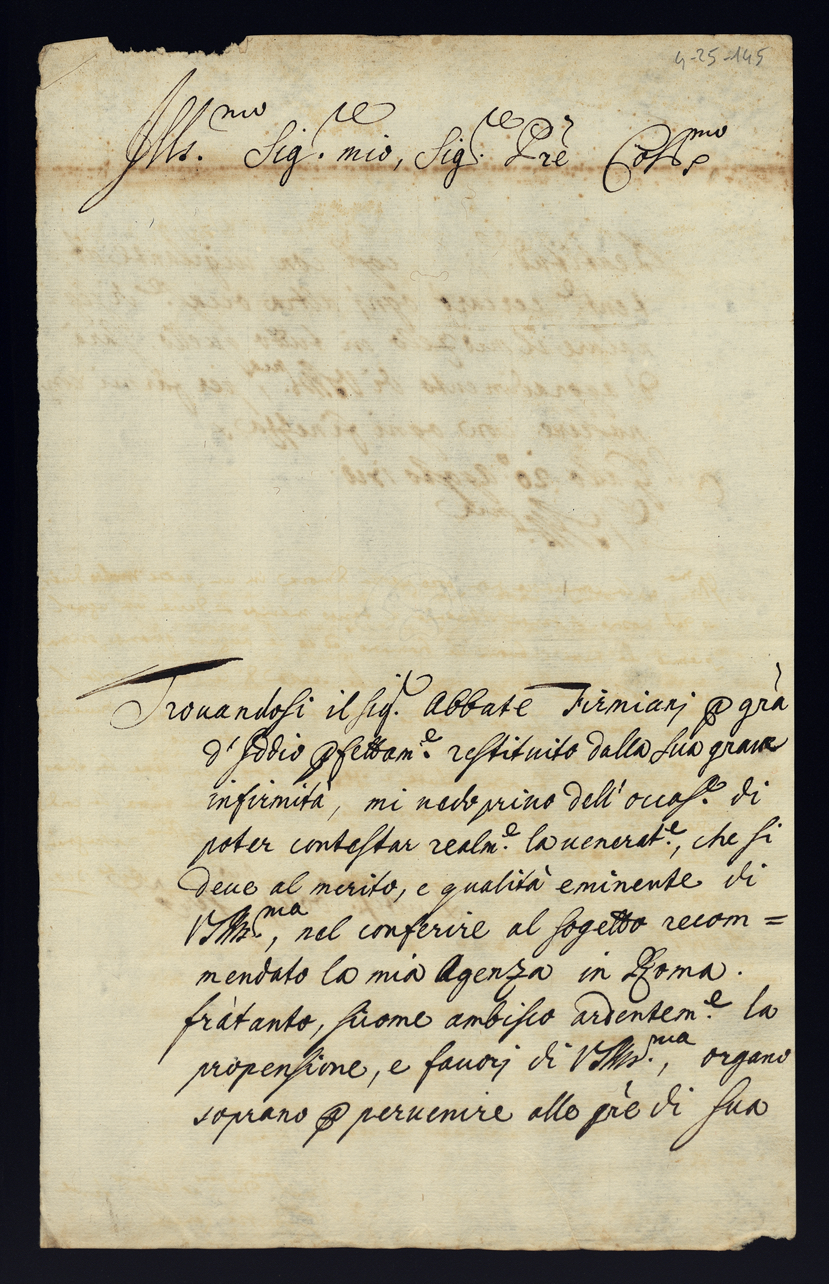 4-25-145
Ills.mo Sig.re mio, Sig.re Prẽ Coll.mo
Trouandosi il sig.r Abbate Firmianj p grã
d'Iddio pfettam.e restituito dalla sua graue
infirmità, mi uedo priuo dell'occas.e di
poter contestar realm.e la uenerat.e, che si
deue al merito, e qualità eminente di
VS Ills.ma, nel conferire al sogetto recom=
mendato la mia Agenza in Roma.
fràtanto, sicome ambisco ardentem.e la
propensione, e fauorj di VS Ills.ma, organo
soprano p peruenire alle grẽ di sua